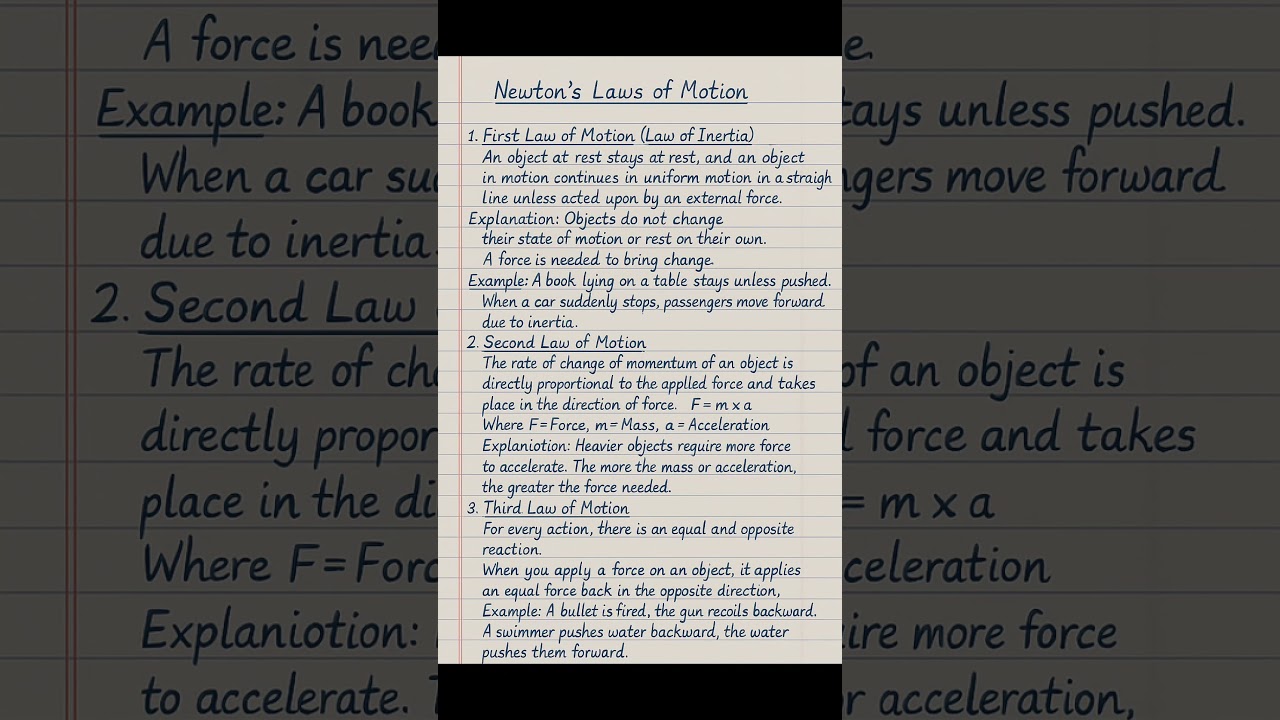 Newton's Laws of Motion
1. First Law of Motion (Law of Inertia)
An object at rest stays at rest, and an object
in motion continues in uniform motion in a straigh
line unless acted upon by an external force.
Explanation: Objects do not change
their state of motion or rest on their own.
A force is needed to bring change.
Example: A book lying on a table stays unless pushed.
When a car suddenly stops, passengers move forward
due to inertia.
2. Second Law of Motion
The rate of change of momentum of an object is
directly proportional to the applled force and takes
place in the direction of force. F = m x a
Where F = Force, m = Mass, a = Acceleration
Explaniotion: Heavier objects require more force
to accelerate. The more the mass or acceleration,
the greater the force needed.
3. Third Law of Motion
For every action, there is an equal and opposite
reaction.
When you apply a force on an object, it applies
an equal force back in the opposite direction,
Example: A bullet is fired, the gun recoils backward.
A swimmer pushes water backward, the water
pushes them forward.